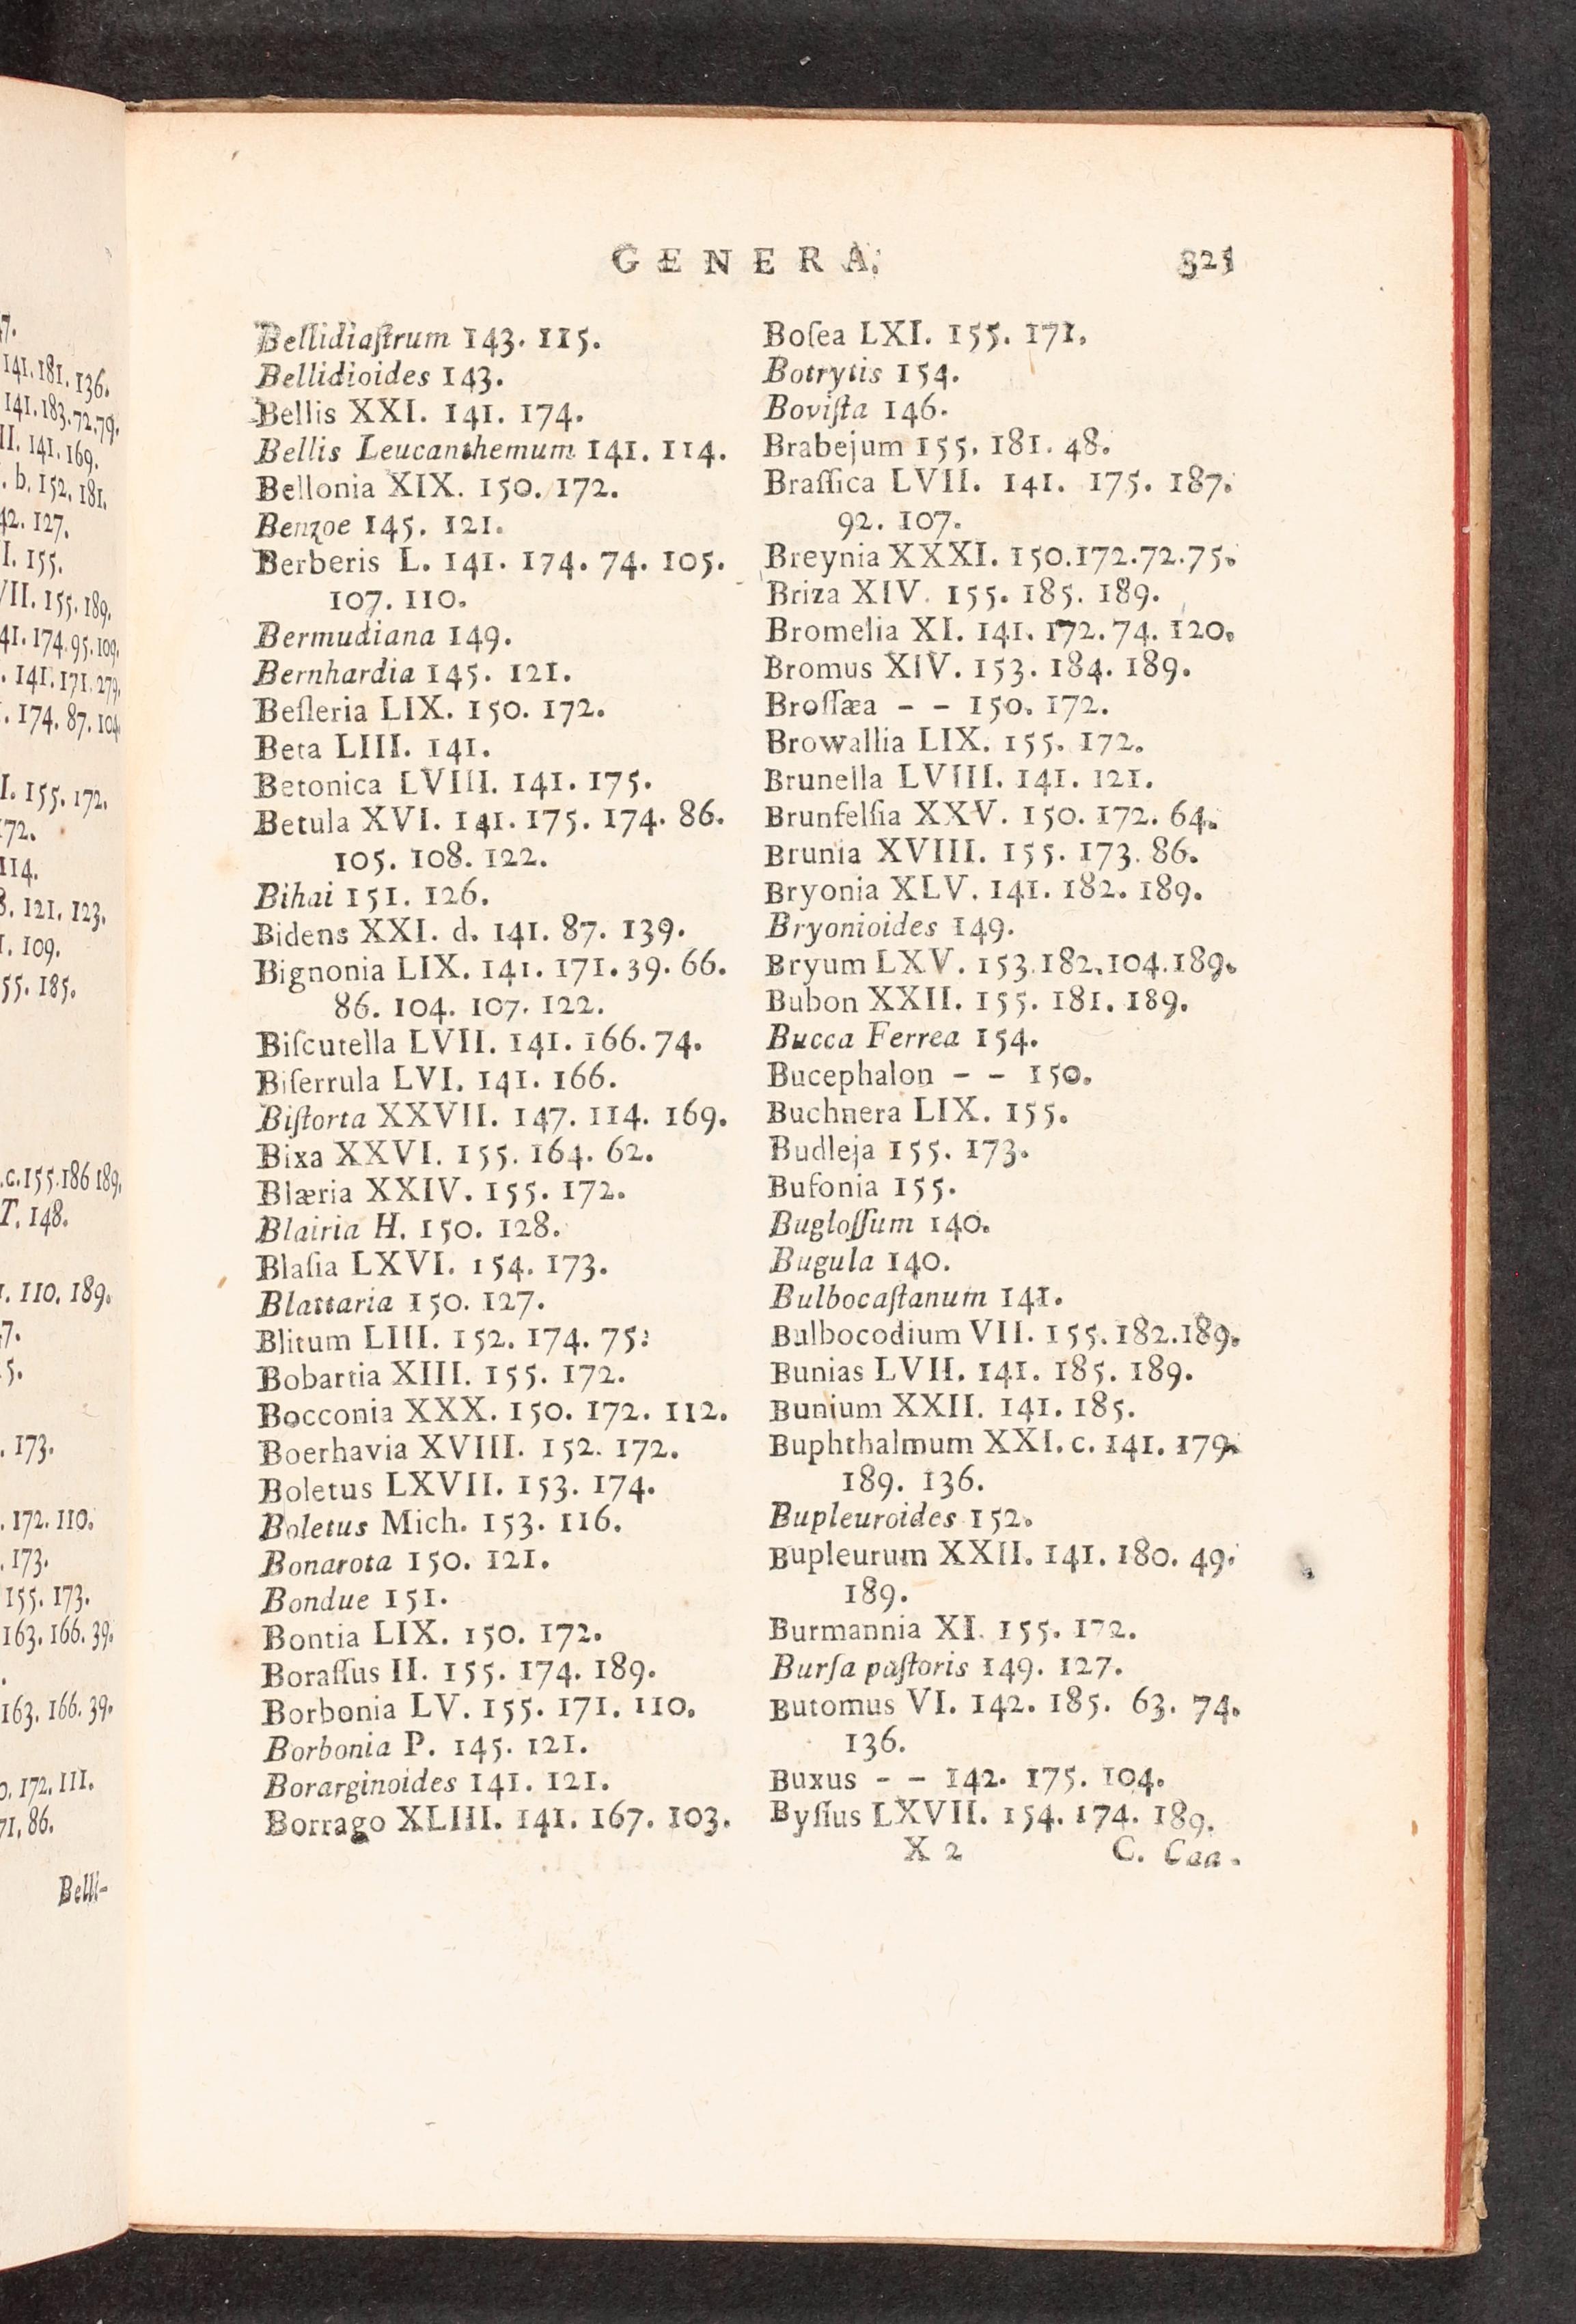 GENERA.
325
Bellidiaſtrum 143. 115.
Bellidioides 143.
Bellis XXI. 141. 174.
Bellis Leucanthemum 141. 114.
Bellonia XIX. 150. 172.
Benzoe 145. 121.
Berberis L. 141. 174. 74. 105.
107. 110.
Bermudiana 149.
Bernhardia 145. 121.
Beſleria LIX. 150. 172.
Beta LIII. 141.
Betonica LVIII. 141. 175.
Betula XVI. 141. 175. 174. 86.
105. 108. 122.
Bihai 151. 126.
Bidens XXI. d. 141. 87. 139.
Bignonia LIX. 141. 171. 39. 66.
86. 104. 107. 122.
Biſcutella LVII. 141. 166. 74.
Biſerrula LVI. 141. 166.
Biſtorta XXVII. 147. 114. 169.
Bixa XXVI. 155. 164. 62.
Blæria XXIV. 155. 172.
Blairia H. 150. 128.
Blaſia LXVI. 154. 173.
Blattaria 150. 127.
Blitum LIII. 152. 174. 75.
Bobartia XIII. 155. 172.
Bocconia XXX. 150. 172. 112.
Boerhavia XVIII. 152. 172.
Boletus LXVII. 153. 174.
Boletus Mich. 153. 116.
Bonarota 150. 121.
Bondue 151.
Bontia LIX. 150. 172.
Boraſſus II. 155. 174. 189.
Borbonia LV. 155. 171. 110.
Borbonia P. 145. 121.
Borarginoides 141. 121.
Borrago XLIII. 141. 167. 103.
Boſea LXI. 155. 171.
Botrytis 154.
Boviſta 146.
Brabejum 155. 181. 48.
Braſſica LVII. 141. 175. 187.
92. 107.
Breynia XXXI. 150.172.72.75.
Briza XIV. 155. 185. 189.
Bromelia XI. 141. 172. 74. 120.
Bromus XIV. 153. 184. 189.
Broſſæa - - 150. 172.
Browallia LIX. 155. 172.
Brunella LVIII. 141. 121.
Brunfelſia XXV. 150. 172. 64.
Brunia XVIII. 155. 173. 86.
Bryonia XLV. 141. 182. 189.
Bryonioides 149.
Bryum LXV. 153.182.104.189.
Bubon XXII. 155. 181. 189.
Bucca Ferrea 154.
Bucephalon - - 150.
Buchnera LIX. 155.
Budleja 155. 173.
Bufonia 155.
Bugloſſum 140.
Bugula 140.
Bulbocaſtanum 141.
Bulbocodium VII. 155.182.189.
Bunias LVII. 141. 185. 189.
Bunium XXII. 141. 185.
Buphthalmum XXI. c. 141. 179.
189. 136.
Bupleuroides 152.
Bupleurum XXII. 141. 180. 49.
189.
Burmannia XI. 155. 172.
Burſa paſtoris 149. 127.
Butomus VI. 142. 185. 63. 74.
136.
Buxus - - 142. 175. 104.
Byſſus LXVII. 154. 174. 189.
X 2
C. Caa-
7.
141. 181. 136.
141. 183. 72. 79.
II. 141. 169.
. b. 152. 181.
42. 127.
I. 155.
VII. 155. 189.
41. 174. 95. 109.
. 141. 171. 279.
. 174. 87. 104
I. 155. 172.
172.
114.
8. 121. 123.
I. 109.
55. 185.
.c. 155. 186 189.
T. 148.
1. 110. 189.
7.
5.
. 173.
. 172. 110.
. 173.
155. 173.
163. 166. 39.
163. 166. 39.
0. 172. 111.
71. 86.
Belli-